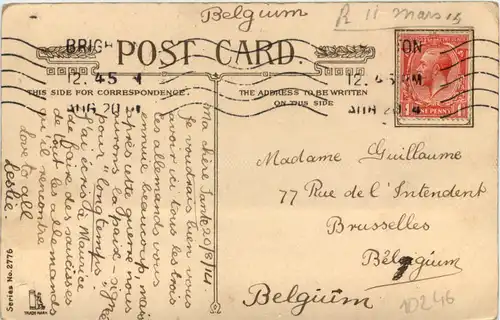 Belgium
R 11 mars 15
BRIGH
ON
12.45
12.45 PM
AUG 20
AUG 20 14
POST CARD.
THIS SIDE FOR CORRESPONDENCE.
THE ADDRESS TO BE WRITTEN
ON THIS SIDE
ONE PENNY
Ma chère Tante 20/8/14.
Je voudrais bien vous
avoir ici tous les trois
Les allemands vous
ennuie beaucoup, mais
après cette guerre nous
aurons la paix - signée
pour "longtemps".
J'ai écris à Maurice
de faire des saucisses
de tout les allemands
qu'il rencontre
Love to all
Leslie.
Madame Guillaume
77 Rue de l'Intendent
Brusselles
Bélgium
Belgium
10246
Series No. 2776
TRADE MARK